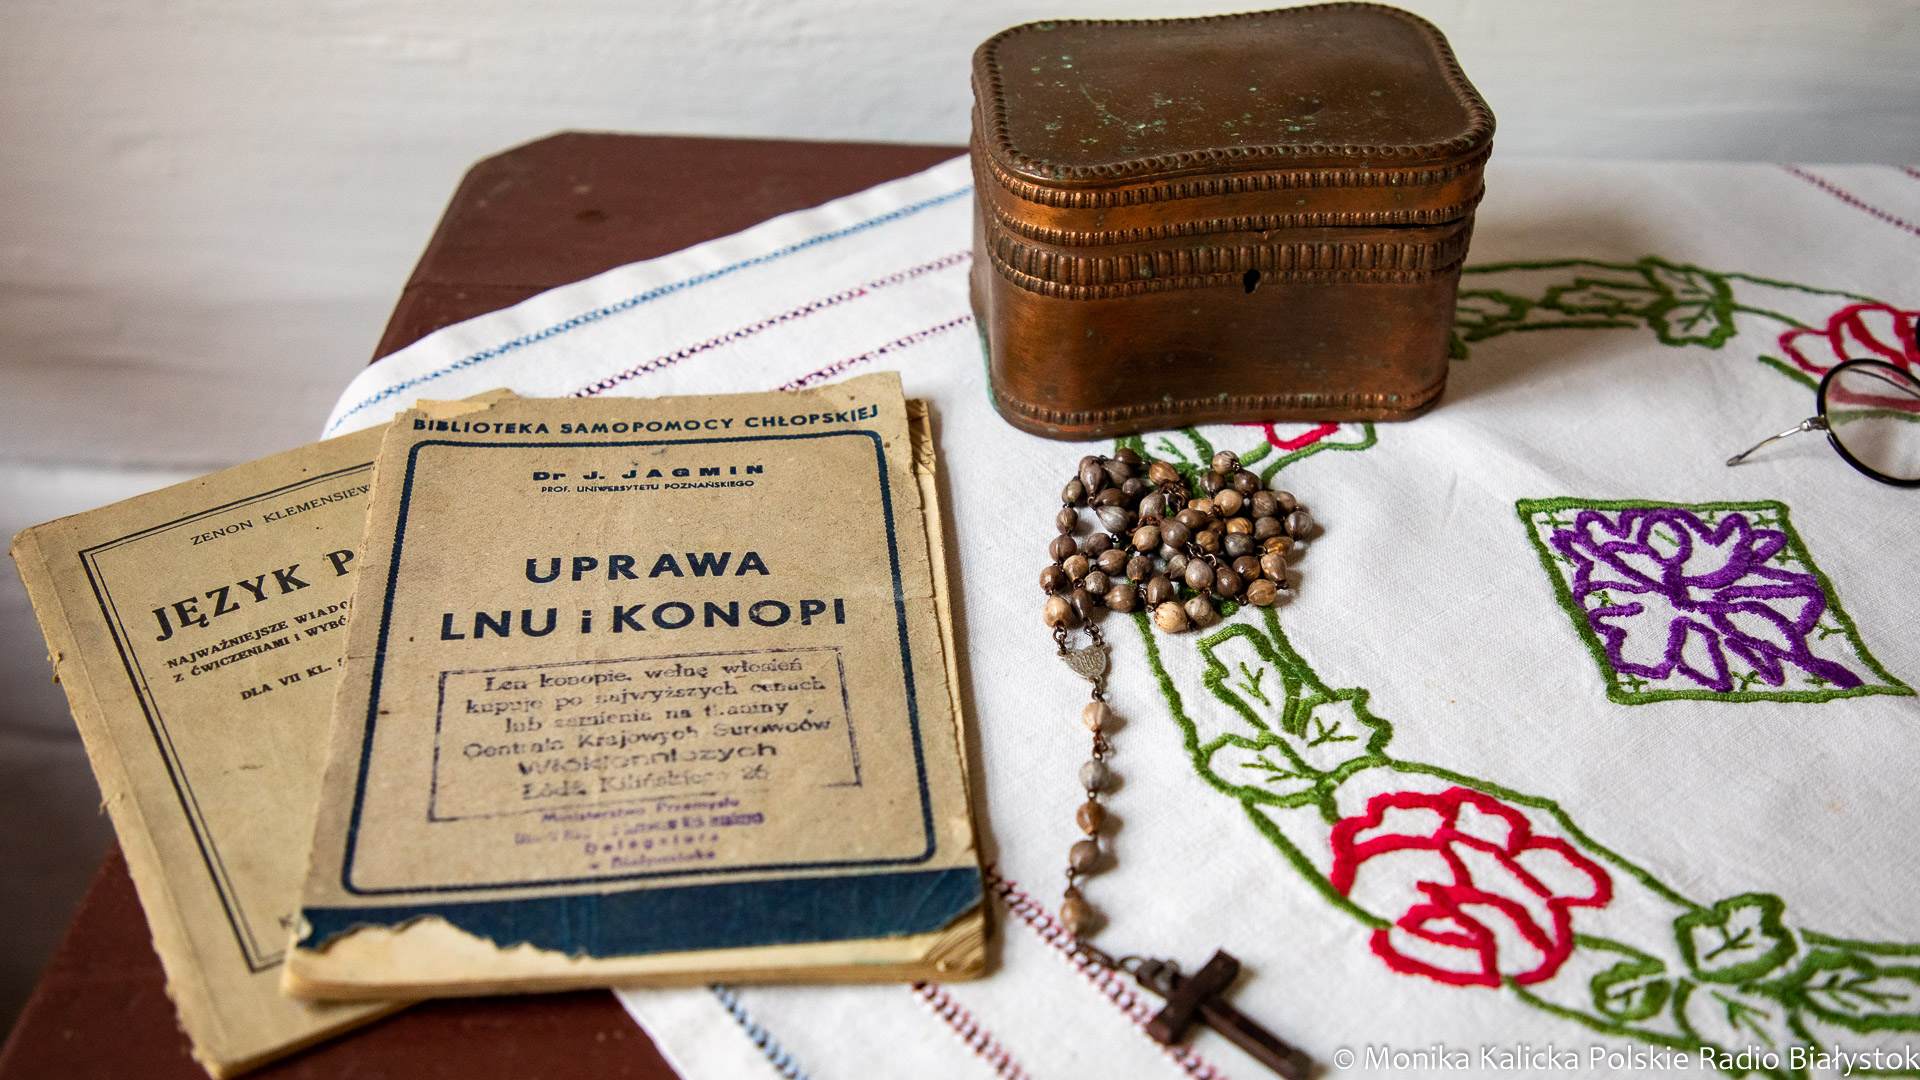 BIBLIOTEKA SAMOPOMOCY CHŁOPSKIEJ
Dr J. JAGMIN
PROF. UNIWERSYTETU POZNAŃSKIEGO
UPRAWA
LNU i KONOPI
Len konopie, wełnę włosień
kupuje po najwyższych cenach
lub zamienia na tkaniny
Centrala Krajowych Surowców
Włókienniczych
Łódź Kilińskiego 26
Ministerstwo Przemysłu
Delegatura
w Białymstoku
ZENON KLEMENSIEW
JĘZYK P
NAJWAŻNIEJSZE WIADO
Z ĆWICZENIAMI I WYBÓ
DLA VII KL. S
© Monika Kalicka Polskie Radio Białystok